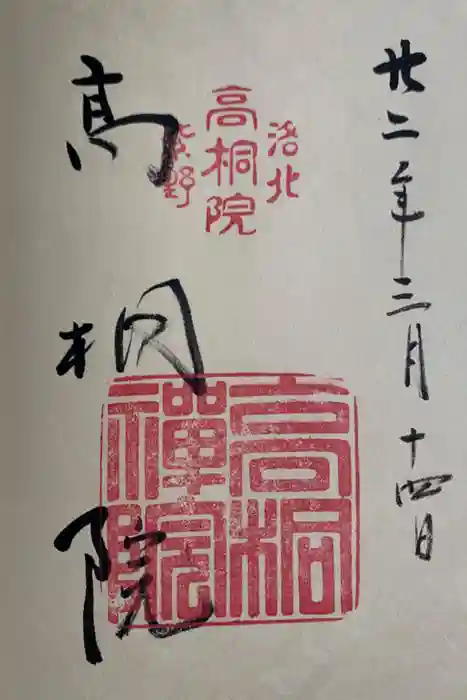 廿二年三月十四日
洛北
高桐院
紫野
高桐院
高桐禅院